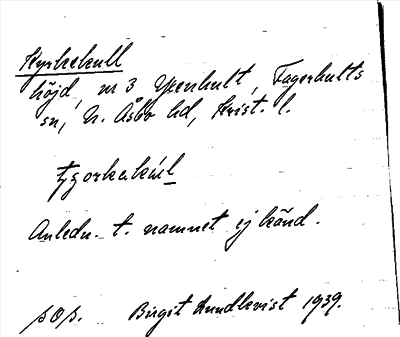 Kyrkekull
höjd, nr 3 Yxenhult, Fagerhults
sn, N. Åsbo hd, Krist. l.
Anledn. t. namnet ej känd.
sOs. Birgit Lundkvist 1939.